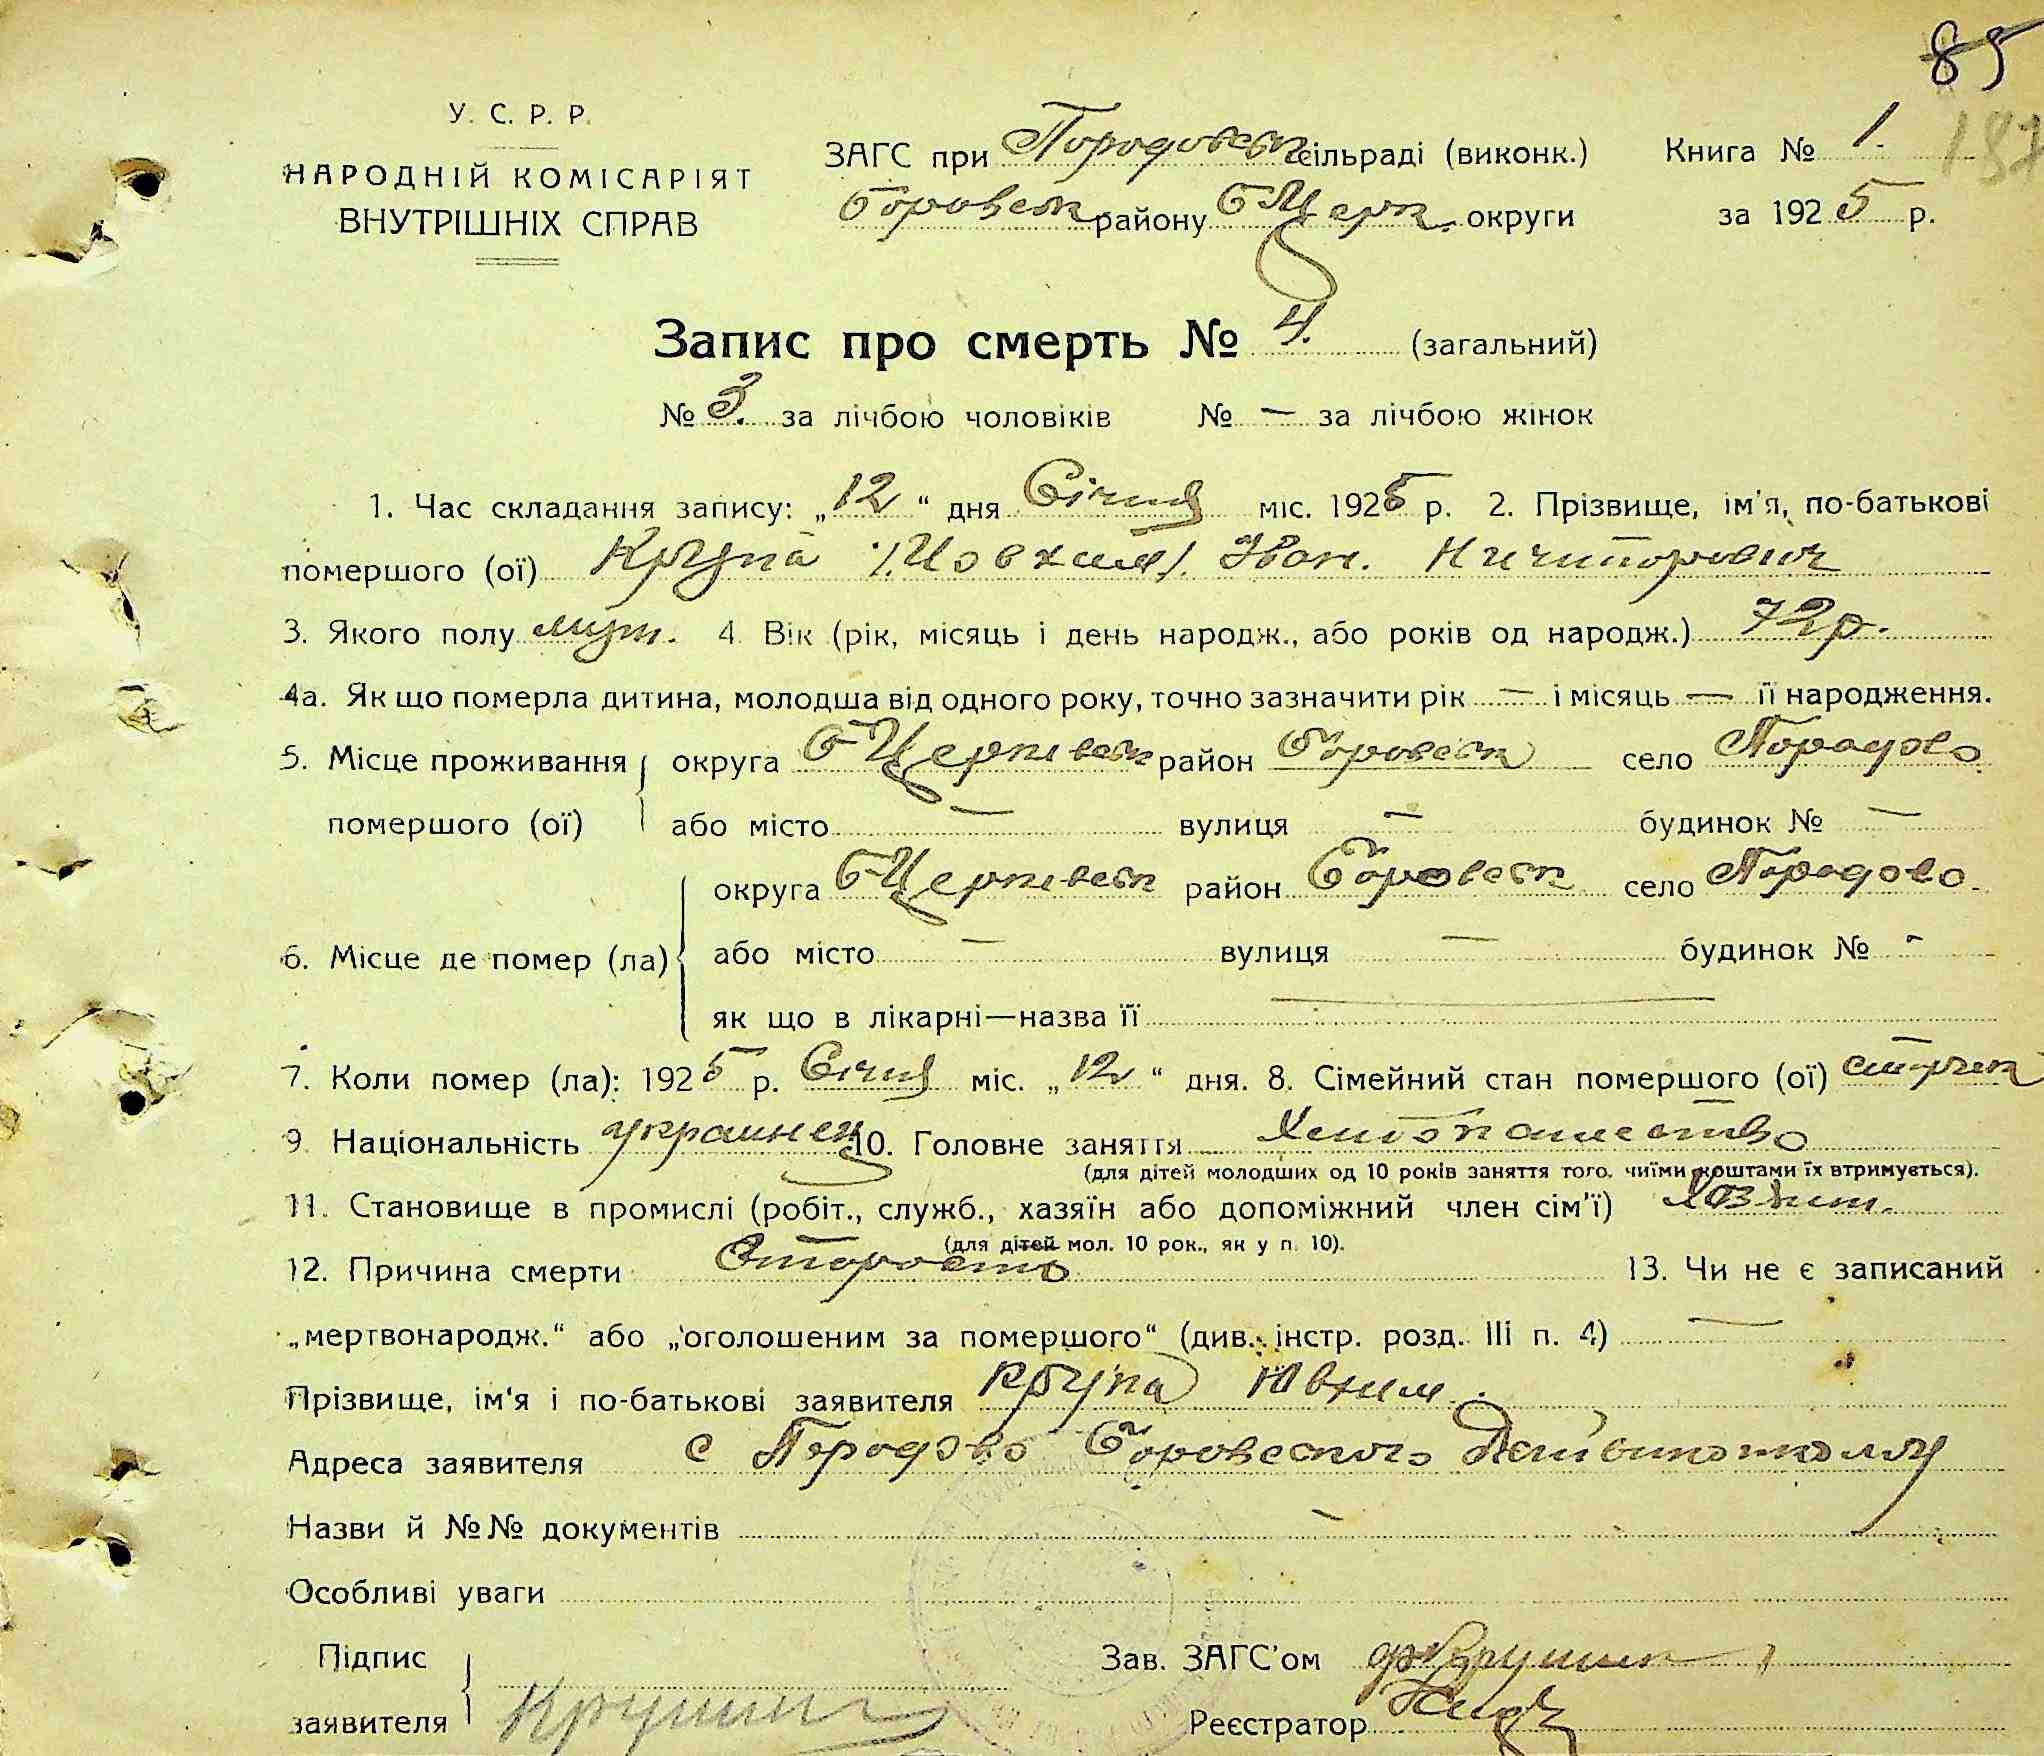 85
187
У. С. Р. Р.
НАРОДНІЙ КОМІСАРІЯТ
ВНУТРІШНІХ СПРАВ
ЗАГС при Порадовськ сільраді (виконк.) Книга № 1.
району БЦерк. округи за 1925 р.
Запис про смерть № 4. (загальний)
№ 3. за лічбою чоловіків № — за лічбою жінок
1. Час складання запису: „12“ дня Січня міс. 1925 р. 2. Прізвище, ім'я, по-батькові
помершого (ої) Крупа Іван. Ничипорович
3. Якого полу муж. 4. Вік (рік, місяць і день народж., або років од народж.) 72р.
4а. Як що померла дитина, молодша від одного року, точно зазначити рік — і місяць — її народження.
5. Місце проживання округа БЦерківськ район село Порадово
помершого (ої) або місто — вулиця — будинок № —
6. Місце де помер (ла) округа БЦерківськ район село Порадово.
або місто — вулиця — будинок № -
як що в лікарні—назва її —
7. Коли помер (ла): 1925 р. Січня міс. „12“ дня. 8. Сімейний стан помершого (ої)
9. Національність украинец 10. Головне заняття Хлібопашество
(для дітей молодших од 10 років заняття того. чиїми коштами їх втримується).
11. Становище в промислі (робіт., служб., хазяїн або допоміжний член сім'ї)
(для дітей мол. 10 рок., як у п. 10).
12. Причина смерти Старость 13. Чи не є записаний
„мертвонародж.“ або „оголошеним за помершого“ (див. інстр. розд. III п. 4) —
Прізвище, ім'я і по-батькові заявителя Крупа Ювхим.
Адреса заявителя с Порадово
Назви й №№ документів —
Особливі уваги
Підпис
заявителя
Зав. ЗАГС'ом
Реєстратор